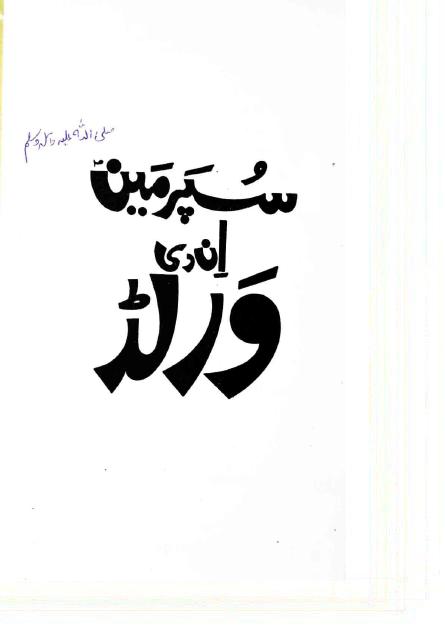 صلی اللہ علیہ وآلہ وسلم
سُپَرمَینؐ
اِن دی
وَرلڈ